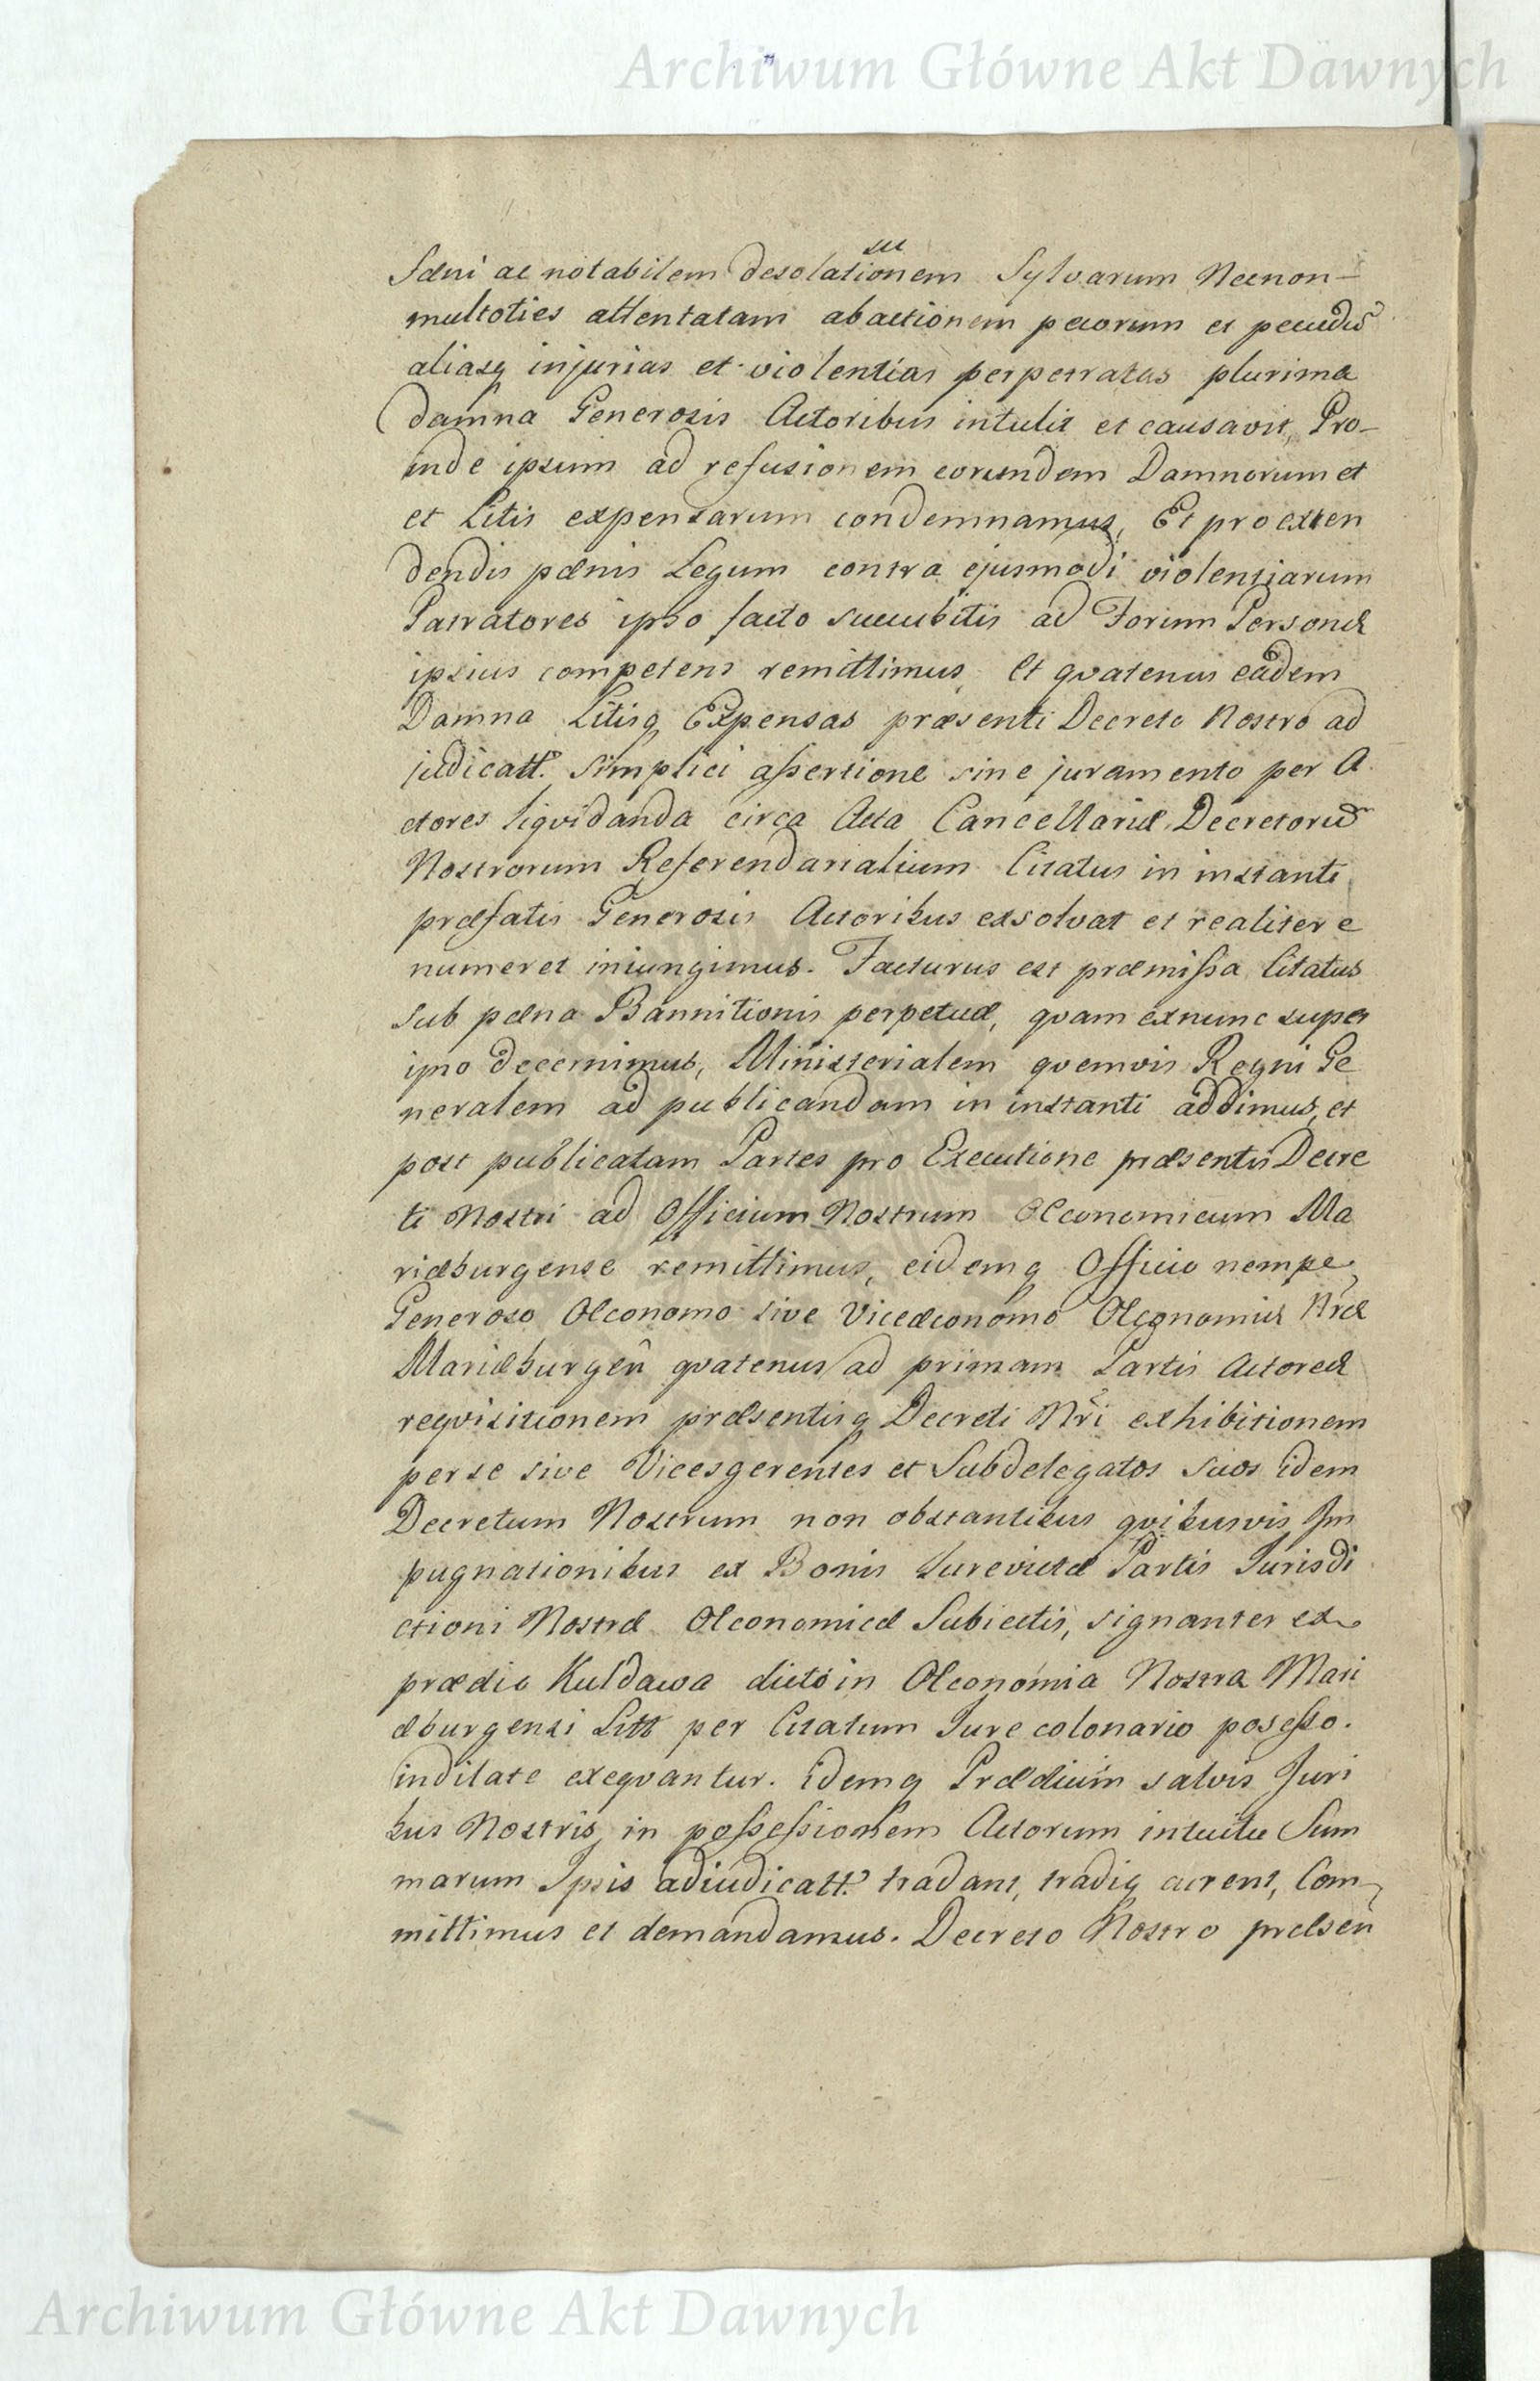 Archiwum Główne Akt Dawnych
Sæni ac notabilem desolationem Sylvarum Necnon
multoties attentatam abactionem pecorum et pecudũ
aliasq injurias et violentias perpetratas plurima
damna Generosis Actoribus intulit et causavit, Pro-
inde ipsum ad refusionem eorundem Damnorum et
et Litis expensarum condemnamus, Et pro exten
dendis pænis Legum contra ejusmodi violentiarum
Patratores ipso facto succubitis ad Forum Personæ
ipsius competens remittimus, Et qvatenus eadem
Damna Litisq Expensas præsenti Decreto Nostro ad
judicatt. simplici assertione sine juramento per A
ctores liqvidanda circa Acta Cancellariæ Decretorũ
Nostrorum Referendarialium Citatus in instanti
præfatis Generosis Actoribus exsolvat et realiter e
numeret iniungimus. Facturus est præmissa Citatus
sub pæna Bannitionis perpetuæ, qvam exnunc super
ipso decernimus, Ministerialem qvemvis Regni Ge
neralem ad publicandam in instanti addimus, et
post publicatam Partes pro Executione præsentis Decre
ti Nostri ad Officium Nostrum Oeconomicum Ma
riæburgense remittimus, eidemq Officio nempe
Generoso Oeconomo sive Viceœconomo Oeconomiæ Nræ
Mariæburgeñ qvatenus ad primam Partis Actoreæ
reqvisitionem præsentisq Decreti Nri exhibitionem
per se sive Vicesgerentes et Subdelegatos suos idem
Decretum Nostrum non obstantibus qvibusvis Im
pugnationibus ex Bonis Iurevictæ Partis Iurisdi
ctioni Nostræ Oeconomicæ Subiectis, signanter ex
prædio Kuldawa dicto in Oeconomia Nostra Mari
æburgensi Litt per Citatum Iure colonario possesso.
indilate exeqvantur. idemq Prædium salvis Juri
bus Nostris in possessionem Actorum intuitu Sum
marum Ipsis adiudicatt. tradant, tradiq curent, Com
mittimus et demandamus. Decreto Nostro præseñ
Archiwum Główne Akt Dawnych